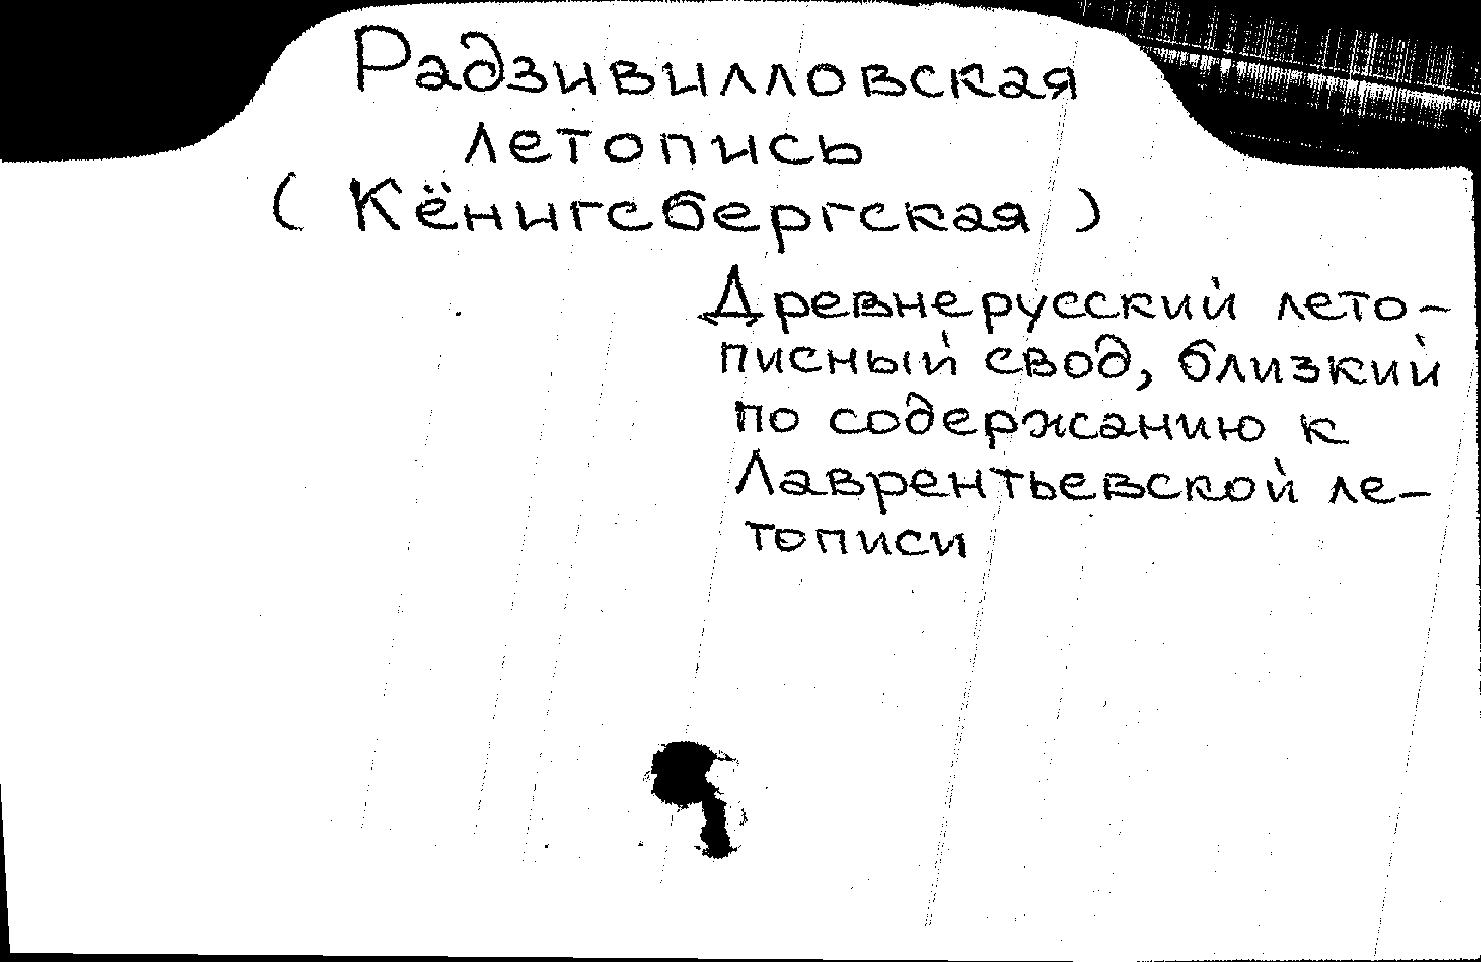 Радзивилловская
летопись
( Кёнигсбергская )
Древнерусский лето-
писный свод, близкий
по содержанию к
Лаврентьевской ле-
тописи